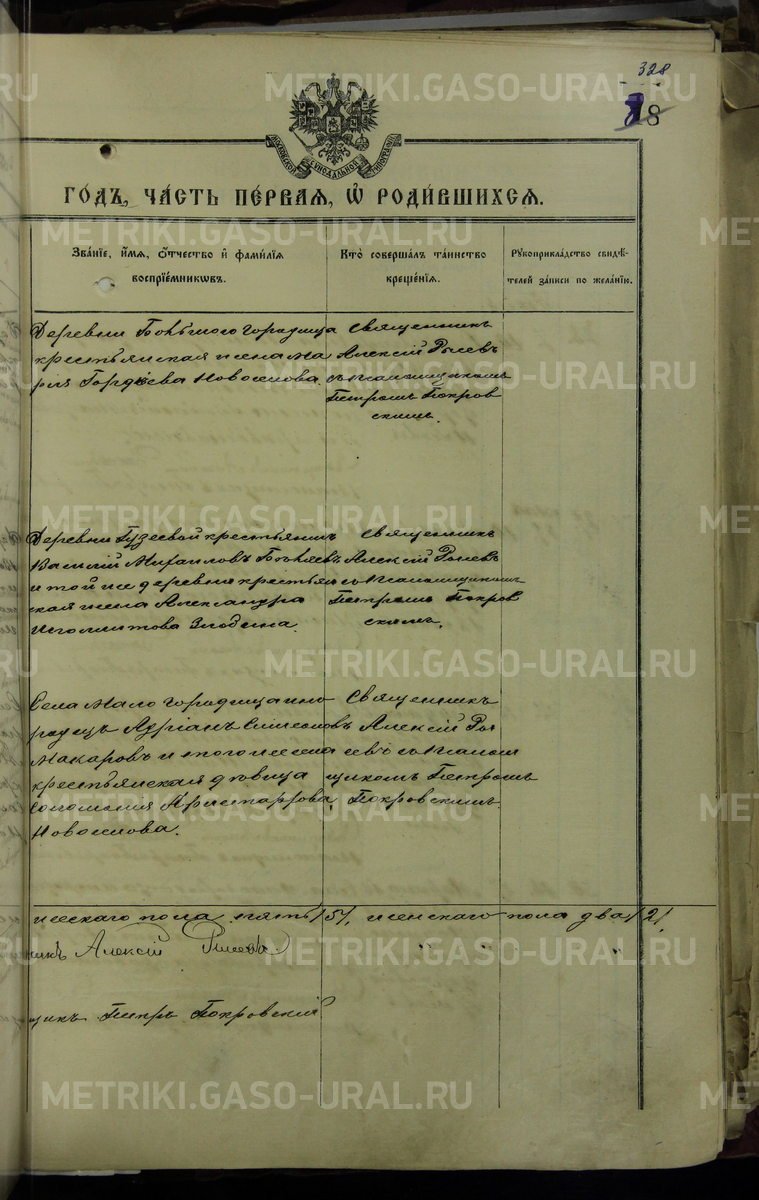 328
8
МОСКОВСКОЙ СѴНОДАЛЬНОЙ ТИПОГРАФІИ
ГОДЪ, ЧАСТЬ ПЕРВАЯ, Ѡ РОДИВШИХСЯ.
Званіе, имя, отчество и фамилія
воспріемниковъ.
Кто совершалъ таинство
крещенія.
Рукоприкладство свидѣ-
телей записи по желанію.
Деревни Большого Городища
крестьянская жена Ма
рія Гордѣева Новоселова.
Священникъ
Алексій Рычевъ
съ псаломщикомъ
Петромъ Покров
скимъ.
Деревни Гузеевой крестьянинъ
Василій Михаиловъ
и той же деревни крестьян
ская жена Александра
Иполитова
Священникъ
Алексій
съ псаломщикомъ
Петромъ Покров
скимъ.
Села Мало Городища ино
родецъ Адріанъ Симеоновъ
Макаровъ и того же села
крестьянская дѣвица
Соломонія Аристархова
Новоселова.
Священникъ
Алексій
съ псалом
щикомъ Петромъ
Покровскимъ.
жескаго пола пять /5/, женскаго пола два /2/.
никъ Алексій
щикъ Петръ Покровскій
METRIKI.GASO-URAL.RU